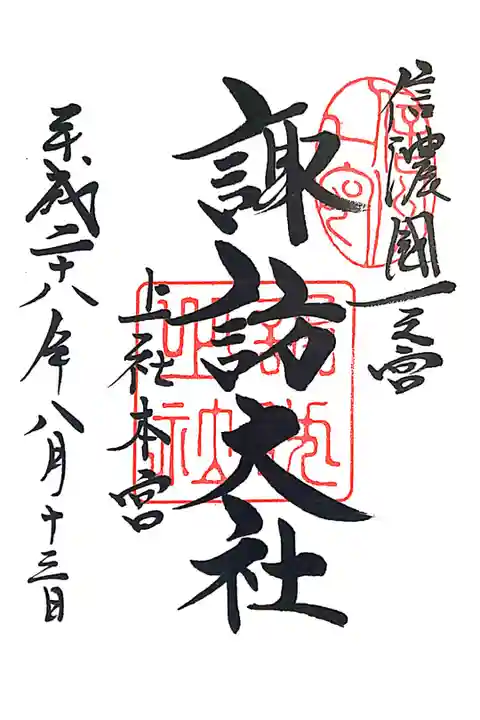 信濃國一之宮
諏訪大社
上社本宮
平成二十八年八月十三日